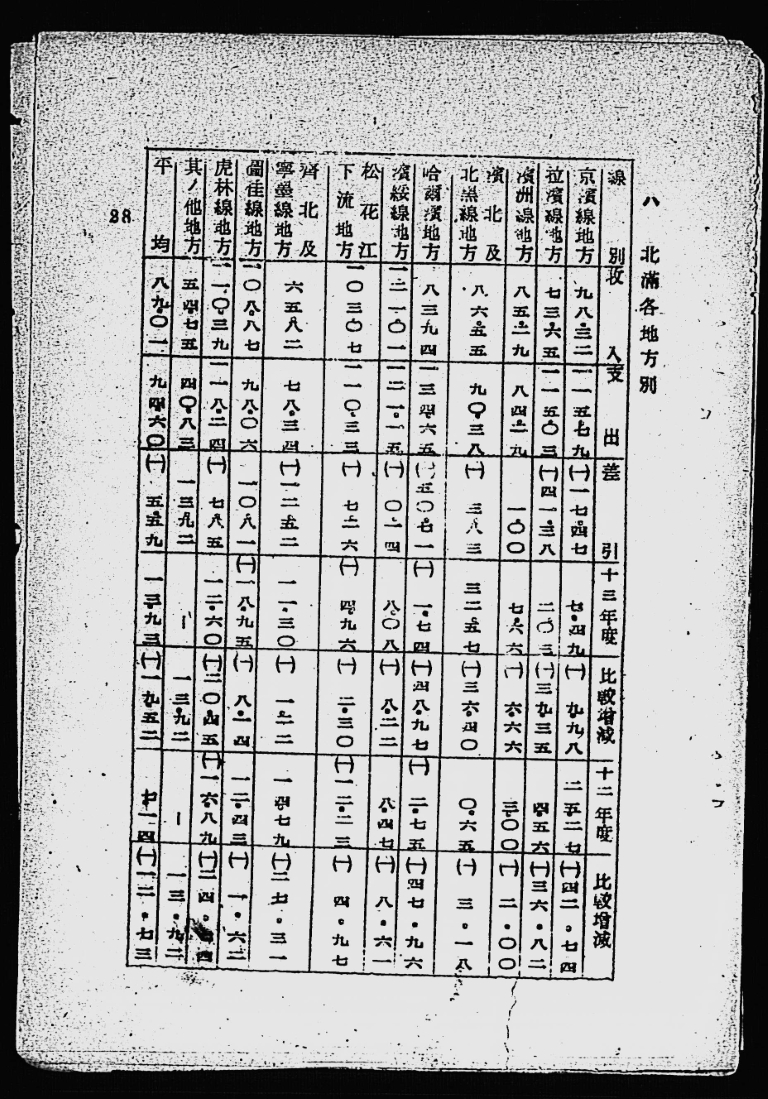 八 北滿各地方別
線別 收入 支出 差引 十三年度 比較增減 十二年度 比較增減
京濱線地方 九八.三二 一一五.七九 (一)一七.四七 七.四九 (一)九.九八 二五.二七 (一)四二.七四
拉濱線地方 七三.六五 一一五.〇三 (一)四一.三八 二.〇三 (一)三九.三五 四.五六 (一)三六.八二
濱洲線地方 八五.二九 八四.二九 一.〇〇 七.六六 (一)六.六六 三.〇〇 (一)二.〇〇
濱北及北黑線地方 八六.五五 九〇.三八 (一)三.八三 三二.五七 (一)三六.四〇 〇.六五 (一)三.一八
哈爾濱地方 八三.九四 一三四.六五 (一)五〇.七一 (一)一.七四 (一)四八.九七 (一)二.七五 (一)四七.九六
濱綏線地方 一二一.〇一 一二一.一五 (一)〇.一四 八.〇八 (一)八.二二 八.四七 (一)八.六一
松花江下流地方 一〇三.〇七 一一〇.三三 (一)七.二六 (一)四.九六 (一)二.三〇 (一)一二.二三 (一)四.九七
齊北及寧墨線地方 六五.八二 七八.三四 (一)一二.五二 一一.三〇 (一)一.二二 一四.七九 (一)二七.三一
圖佳線地方 一〇八.八七 九八.〇六 一〇.八一 (一)一八.九五 (一)八.一四 一二.四三 (一)一.六二
虎林線地方 一一〇.三九 一一八.二四 (一)七.八五 一二.六〇 (一)二〇.四五 (一)一六.八九 (一)二四.
其ノ他地方 五四.七五 四〇.八三 一三.九二 ー 一三.九二 ー 一三.九二
平均 八九.〇一 九四.六〇 (一)五.五九 一三.九三 (一)一九.五二 七.一四 (一)一二.七三
28